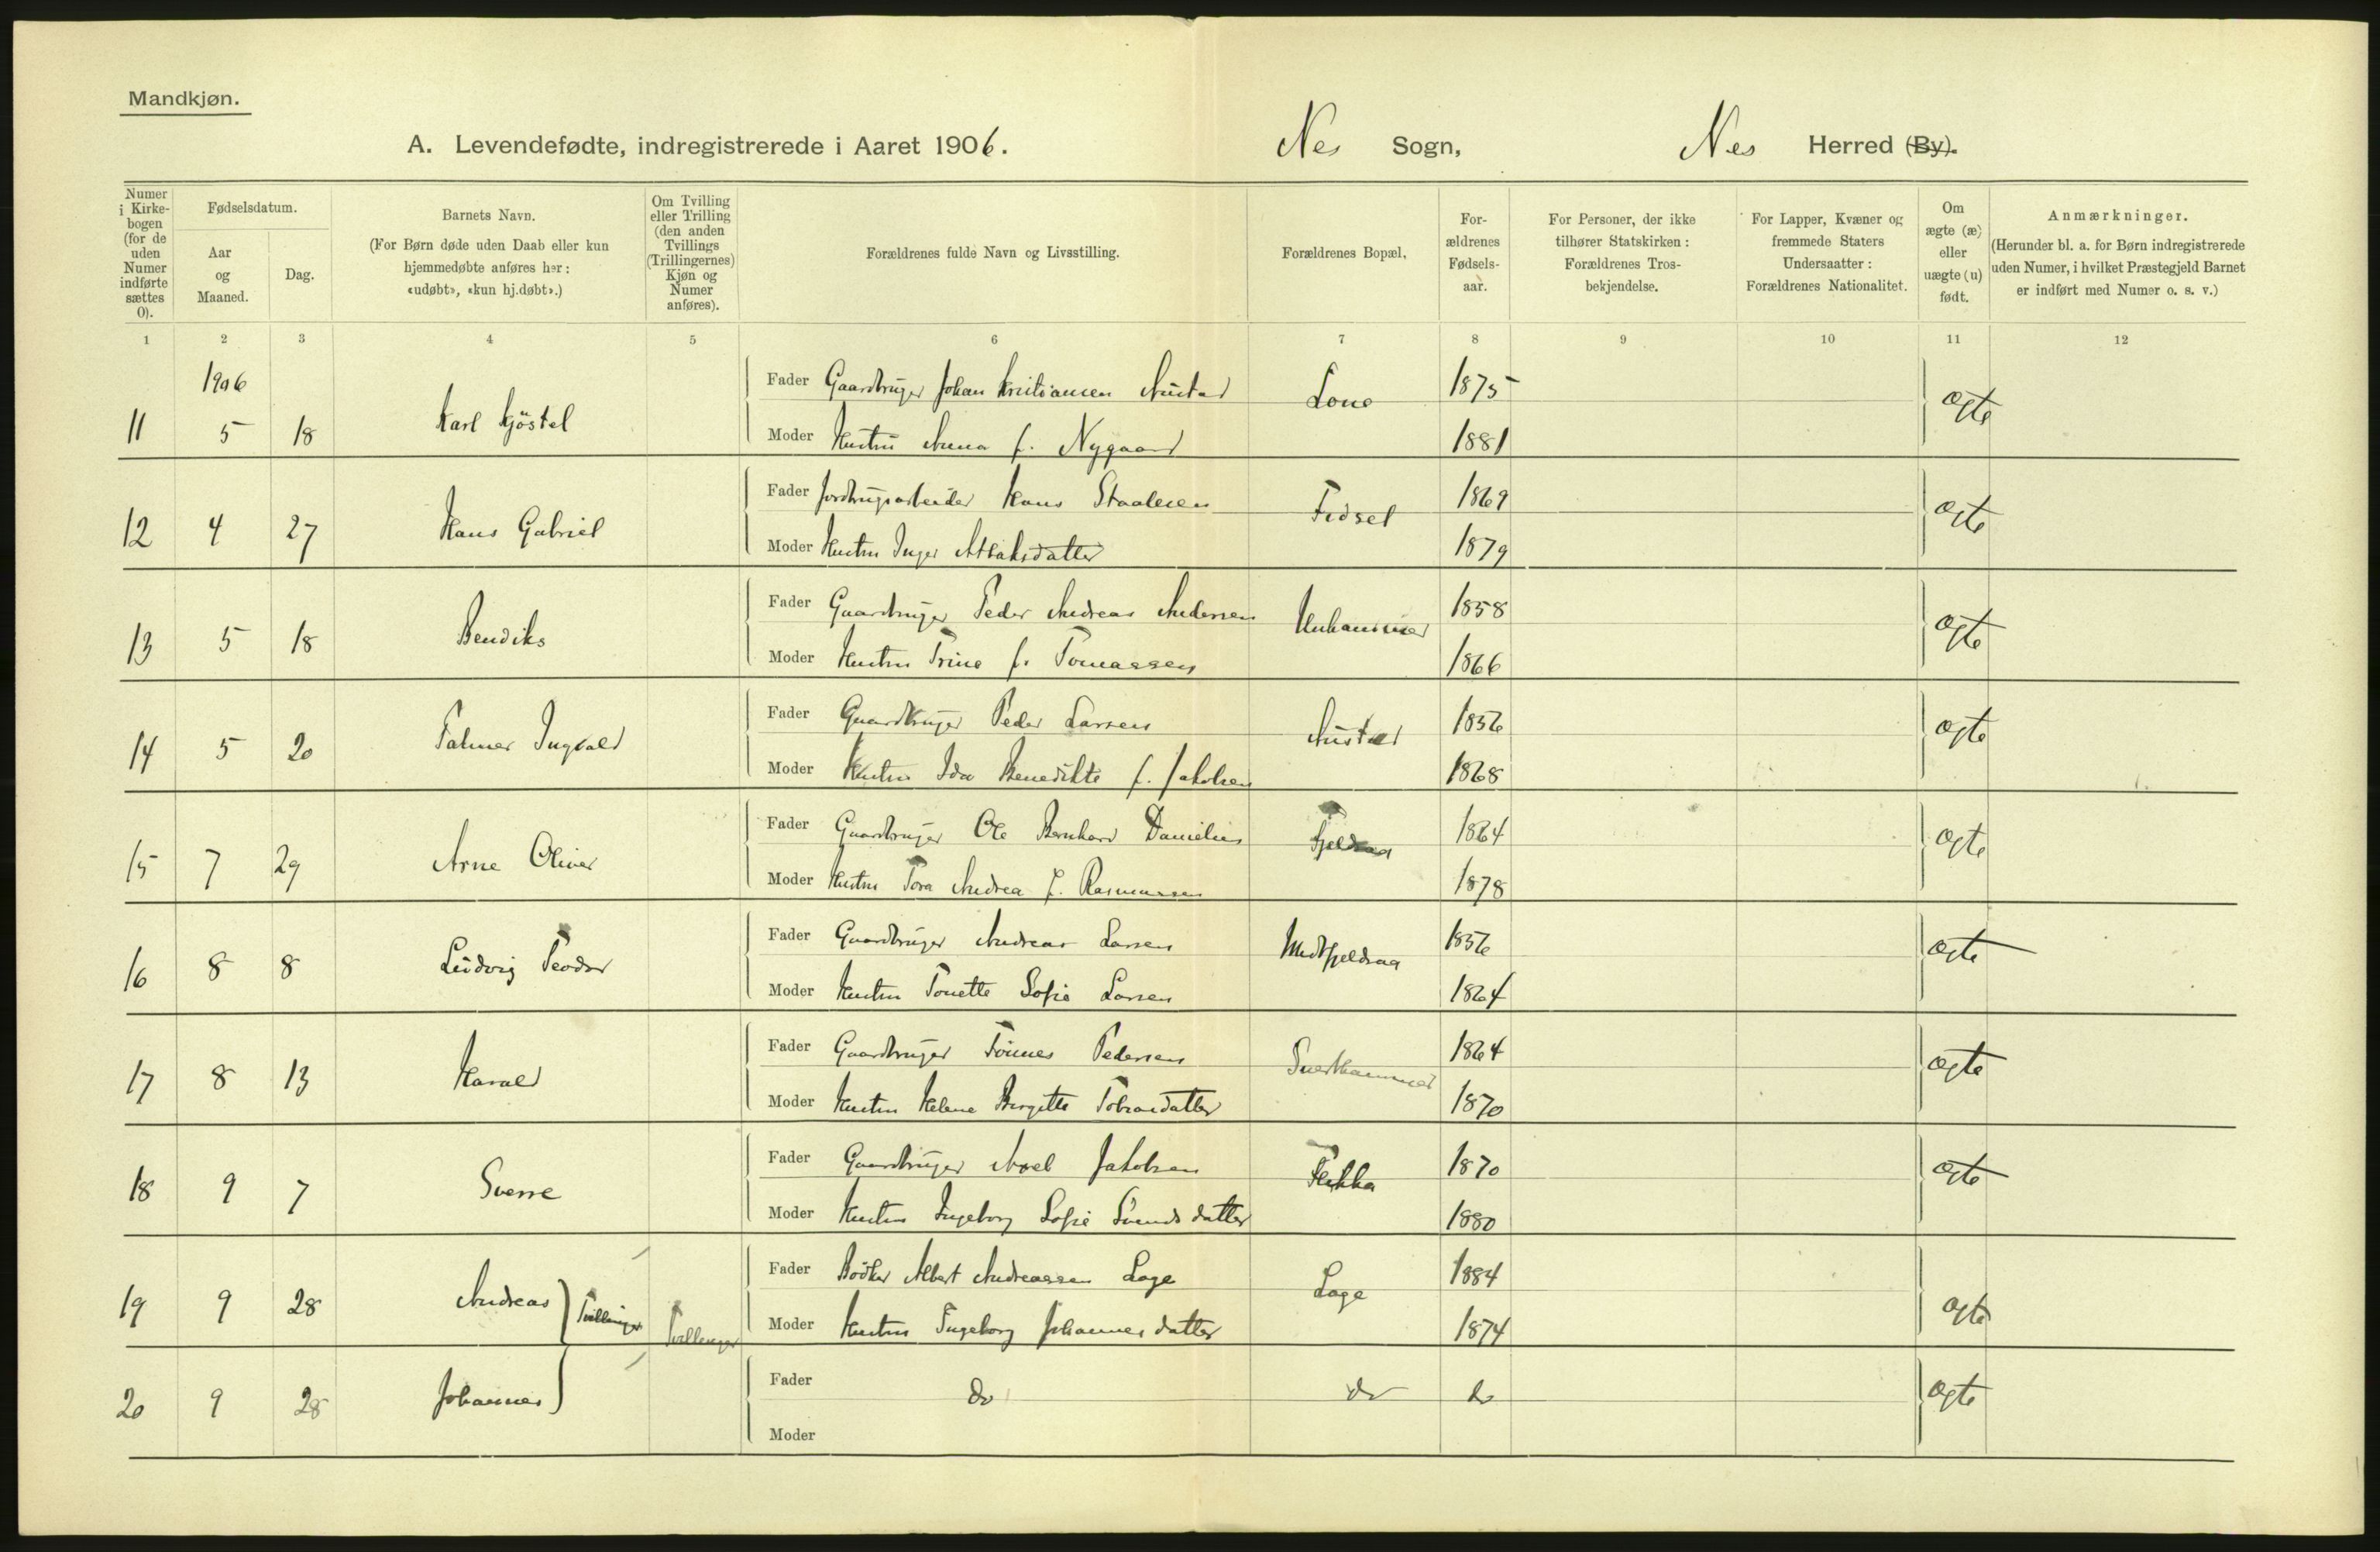 Mandkjøn.
A. Levendefødte, indregistrerede i Aaret 1906.
Nes Sogn,
Nes Herred (By).
Numer i Kirkebogen (for de uden Numer indførte sættes 0).
Fødselsdatum.
Aar og Maaned.
Dag.
Barnets Navn.
(For Børn døde uden Daab eller kun hjemmedøbte anføres her: «udøbt», «kun hj.døbt».)
Om Tvilling eller Trilling (den anden Tvillings (Trillingernes) Kjøn og Numer anføres).
Forældrenes fulde Navn og Livsstilling.
Forældrenes Bopæl.
Forældrenes Fødselsaar.
For Personer, der ikke tilhører Statskirken: Forældrenes Trosbekjendelse.
For Lapper, Kvæner og fremmede Staters Undersaatter: Forældrenes Nationalitet.
Om ægte (æ) eller uægte (u) født.
Anmærkninger.
(Herunder bl. a. for Børn indregistrerede uden Numer, i hvilket Præstegjeld Barnet er indført med Numer o. s. v.)
1 2 3 4 5 6 7 8 9 10 11 12
1906
11 5 18 Karl Kjöstel
Fader Gaardbruger Johan Kristiansen Austad Lone 1875 ægte
Moder Hustru Anna f. Nygaard 1881
12 4 27 Hans Gabriel
Fader Jordbrugsarbeider Hans Staalesen Fidsel 1869 ægte
Moder Hustru Inger Atlaksdatter 1879
13 5 18 Bendiks
Fader Gaardbruger Peder Andreas Andersen Unhammer 1858 ægte
Moder Hustru Trine f. Tomassen 1866
14 5 20 Falmer Ingvald
Fader Gaardbruger Peder Larsen Austad 1856 ægte
Moder Hustru Ida Benedikte f. Jakobsen 1868
15 7 29 Arne Oliver
Fader Gaardbruger Ole Bernhard Danielsen Fjeldsaa 1864 ægte
Moder Hustru Tora Andrea f. Rasmussen 1878
16 8 8 Ludvig Teodor
Fader Gaardbruger Andreas Larsen Midtfjeldsaa 1856 ægte
Moder Hustru Tonette Sofie Larsen 1864
17 8 13 Harald
Fader Gaardbruger Tönnes Pedersen 1864 ægte
Moder Hustru Helene Birgitte Tobiasdatter 1870
18 9 7 Sverre
Fader Gaardbruger Axel Jakobsen Flikka 1870 ægte
Moder Hustru Ingeborg Sofie Svendsdatter 1880
19 9 28 Andreas } Tvillinger Tvillinger
Fader Bödker Albert Andreassen Loge Loge 1884 ægte
Moder Hustru Ingeborg Johannesdatter 1874
20 9 28 Johannes }
Fader do do do ægte
Moder